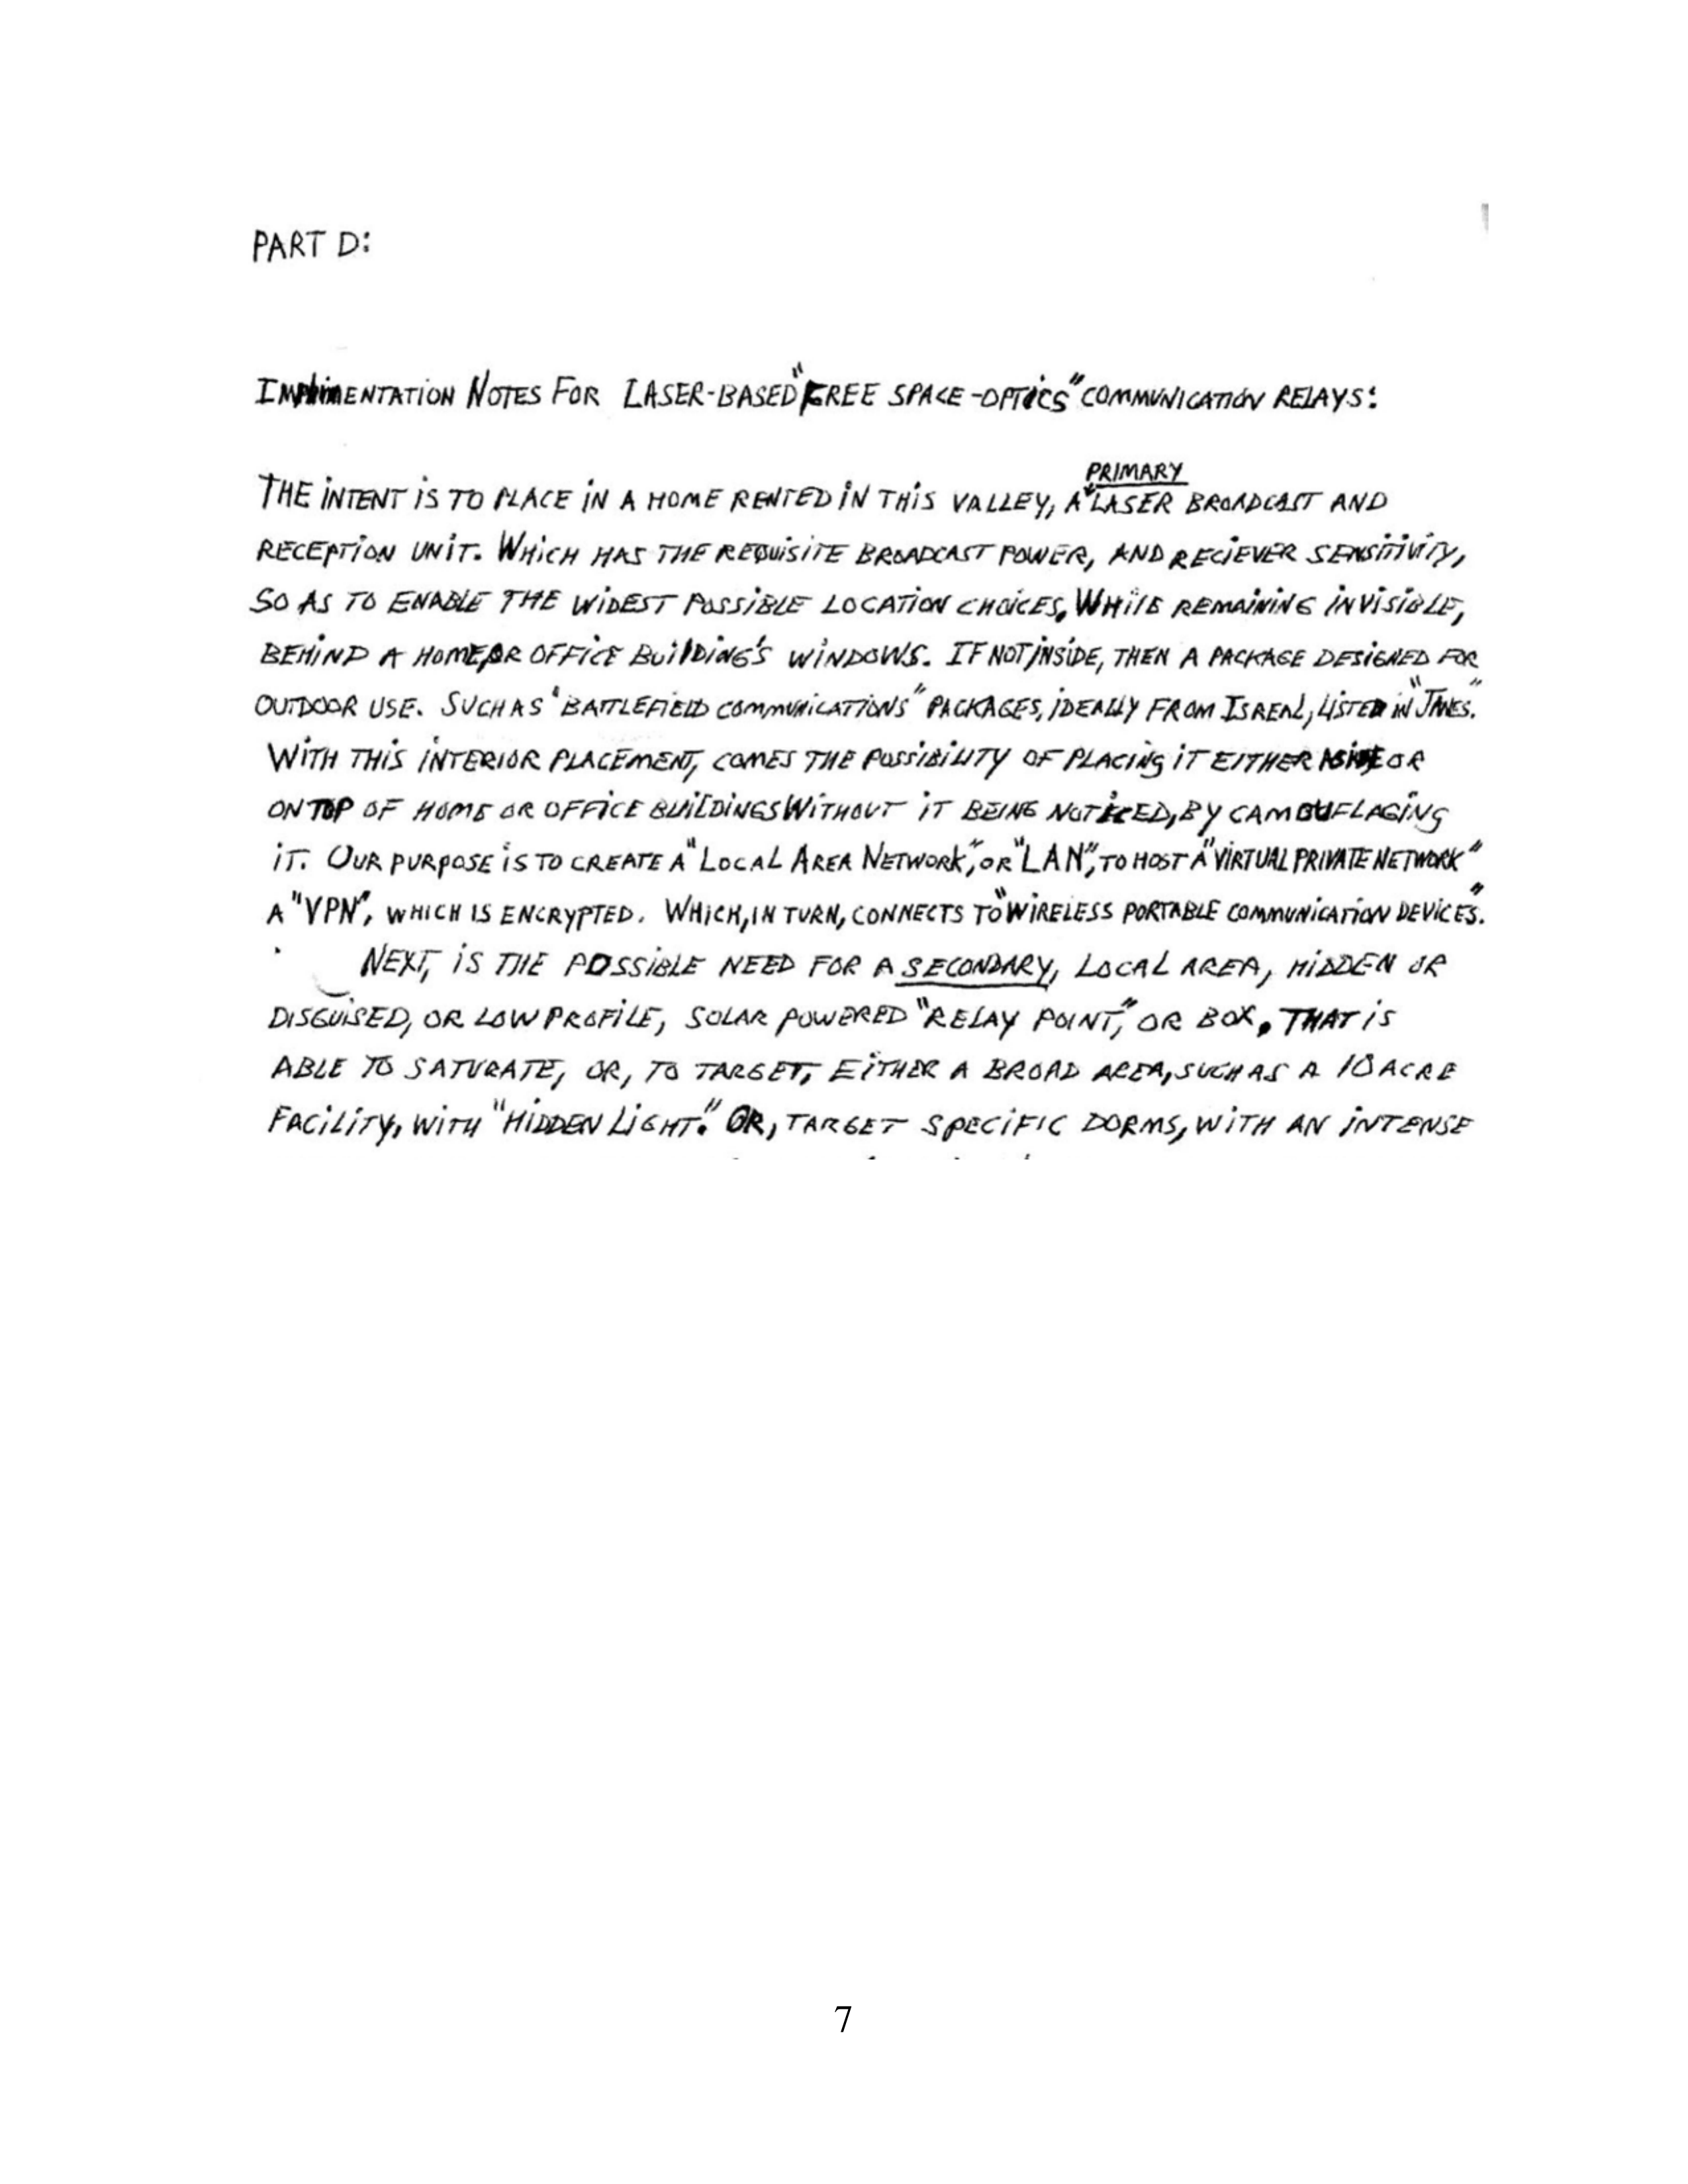 PART D:
IMPLIMENTATION NOTES FOR LASER-BASED "FREE SPACE-OPTICS" COMMUNICATION RELAYS:
PRIMARY
THE INTENT IS TO PLACE IN A HOME RENTED IN THIS VALLEY, A LASER BROADCAST AND
RECEPTION UNIT. WHICH HAS THE REQUISITE BROADCAST POWER, AND RECIEVER SENSITIVITY,
SO AS TO ENABLE THE WIDEST POSSIBLE LOCATION CHOICES, WHILE REMAINING INVISIBLE,
BEHIND A HOME, OR OFFICE BUILDING'S WINDOWS. IF NOT INSIDE, THEN A PACKAGE DESIGNED FOR
OUTDOOR USE. SUCH AS "BATTLEFIELD COMMUNICATIONS" PACKAGES, IDEALLY FROM ISREAL, LISTED IN "JANES."
WITH THIS INTERIOR PLACEMENT, COMES THE POSSIBILITY OF PLACING IT EITHER OR
ON TOP OF HOME OR OFFICE BUILDINGS WITHOUT IT BEING NOTICED, BY CAMOUFLAGING
IT. OUR PURPOSE IS TO CREATE A "LOCAL AREA NETWORK," OR "LAN", TO HOST A "VIRTUAL PRIVATE NETWORK"
A "VPN", WHICH IS ENCRYPTED. WHICH, IN TURN, CONNECTS TO "WIRELESS PORTABLE COMMUNICATION DEVICES".
NEXT, IS THE POSSIBLE NEED FOR A SECONDARY, LOCAL AREA, HIDDEN OR
DISGUISED, OR LOW PROFILE, SOLAR POWERED "RELAY POINT," OR BOX. THAT IS
ABLE TO SATURATE, OR, TO TARGET, EITHER A BROAD AREA, SUCH AS A 10 ACRE
FACILITY, WITH "HIDDEN LIGHT." OR, TARGET SPECIFIC DORMS, WITH AN INTENSE
7